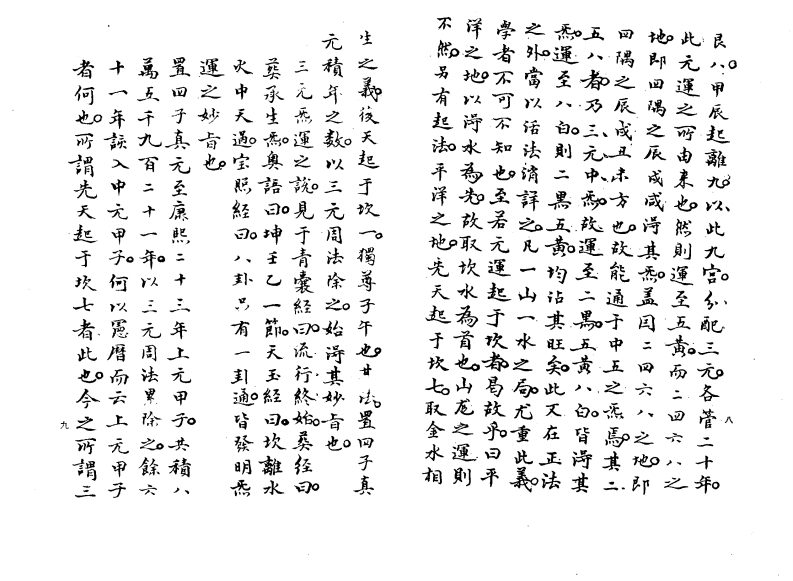 艮八。甲辰起離九。以此九宮。分配三元。各管二十年。
此元運之所由來也。然則運至五黃。而二四六八之
地。即四隅之辰戌咸淂其炁。盖因二四六八之地。即
四隅之辰戌丑未方也。故能通于中五之炁焉。其二
五八者。乃三元中炁。故運至二黑。五黃。八白。皆淂其
炁。運至八白。則二黑五黃。均沾其旺矣。此又在正法
之外。當以活法消詳之。凡一山一水之局。尤重此義。
學者不可不知也。至若元運起于坎者。局故乎。曰平
洋之地。以淂水為先。故取坎水為首也。山龙之運則
不然。另有起法。平洋之地。先天起于坎七。取金水相
八
生之義。後天起于坎一。獨尊子午也。廿法。置四子真
元積年之数。以三元周法除之。始淂其妙旨也
三元炁運之說。見于青囊經曰。流行終始。葵經曰。
葵承生炁。奥語曰。坤壬乙一節。天玉經曰。坎離水
火中天過。宝照經曰。八卦只有一卦通。皆發明炁
運之妙旨也。
置四子真元至康熙二十三年上元甲子。共積八
萬五千九百二十一年。以三元周法累除之。餘六
十一年。該入中元甲子。何以憲曆而云上元甲子
者何也。所謂先天起于坎七者此也。今之所謂三
九